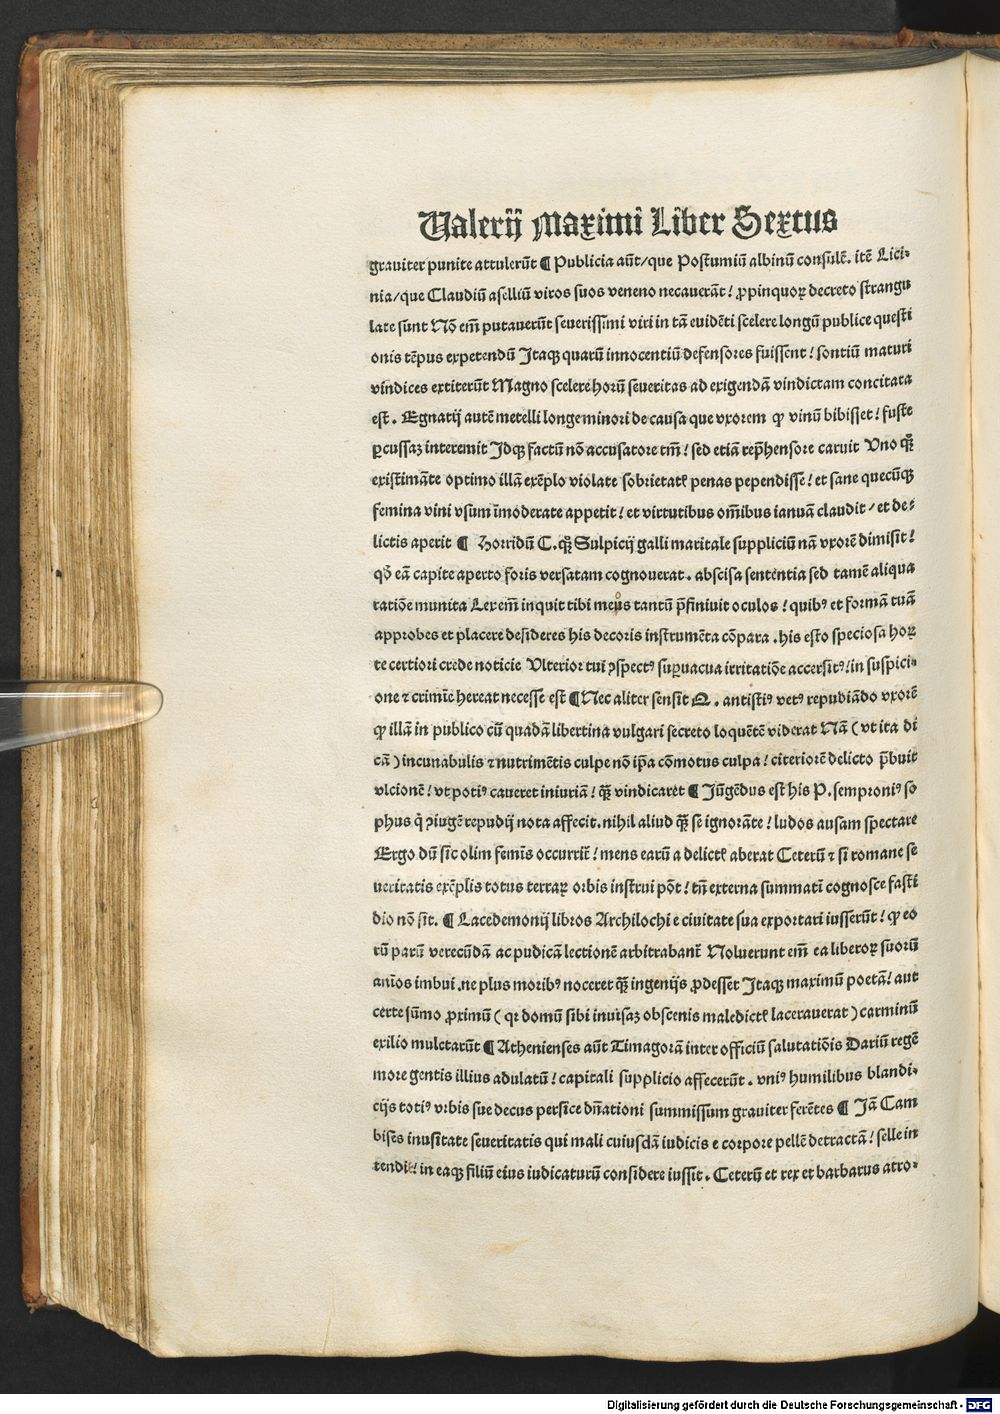 Valerij Maximi Liber Sextus
grauiter punite attulerūt ¶ Publicia aūt/que Postumiū albinū consulē. itē Lici⸗
nia/que Claudiū aselliū viros suos veneno necauerāt! ꝓpinquoꝝ decreto strangu
late sunt Nō em̄ putauerūt seuerissimi viri in tā euidēti scelere longū publice questi
onis tēpus expetendū Itaqꝫ quarū innocentiū defensores fuissent! sontiū maturi
vindices extiterūt Magno scelere horū seueritas ad exigendā vindictam concitata
est. Egnatij autē metelli longe minori de causa que vxorem ꝙ vinū bibisset! fuste
ꝑcussaꝫ interemit Idqꝫ factū nō accusatore tm̄! sed etiā rep̄hensore caruit Vno qꝫ̄
existimāte optimo illā exēplo violate sobrietatꝭ penas pependisse! et sane quecūqꝫ
femina vini vsum īmoderate appetit! et virtutibus om̄ibus ianuā claudit/et de⸗
lictis aperit ¶ Horridū C. qꝫ̄ Sulpicij galli maritale suppliciū nā vxorē dimisit!
qō eā capite aperto foris versatam cognouerat. abscisa sententia sed tamē aliqua
ratiōe munita Lex em̄ inquit tibi meus tantū p̄finiuit oculos! quibꝰ et formā tuā
approbes et placere desideres his decoris instrumēta cōpara. his esto speciosa hoꝝ
te certiori crede noticie Vlterior tui ꝯspectꝰ suꝑuacua irritatiōe accersitꝰ! in suspici⸗
one ⁊ crimīe hereat necesse est ¶ Nec aliter sensit Q. antistiꝰ vetꝰ repudiādo vxorē
ꝙ illā in publico cū quadā libertina vulgari secreto loquētē viderat Nā (vt ita di
cā) incunabulis ⁊ nutrimētis culpe nō ip̄a cōmotus culpa! citeriorē delicto p̄buit
vlcionē! vt potiꝰ caueret iniuriā! qꝫ̄ vindicaret ¶ Iūgēdus est his P. semproniꝰ so
phus q̇ ꝯiugē repudij nota affecit. nihil aliud qꝫ̄ se ignorāte! ludos ausam spectare
Ergo dū sic̄ olim femīs occurrit̄! mens earū a delictꝭ aberat Ceterū ⁊ si romane se
ueritatis exēplis totus terraꝝ orbis instrui pōt! tn̄ externa summatī cognosce fasti
dio nō sit. ¶ Lacedemonij libros Archilochi e ciuitate sua exportari iusserūt! ꝙ eo
rū parū verecūdā ac pudicā lectionē arbitrabant̄ Noluerunt em̄ ea liberoꝝ suorū
aīos imbui. ne plus moribꝰ noceret qꝫ̄ ingenijs ꝓdesset Itaqꝫ maximū poetā! aut
certe sūmo ꝓximū (qꝛ domū sibi inuisaꝫ obscenis maledictꝭ lacerauerat) carminū
exilio mulctarūt ¶ Athenienses aūt Timagorā inter officiū salutatiōis Dariū regē
more gentis illius adulatū! capitali supplicio affecerūt. vniꝰ humilibus blandi⸗
cijs totiꝰ vrbis sue decus persice dn̄ationi summissum grauiter ferētes ¶ Iā Cam
bises inusitate seueritatis qui mali cuiusdā iudicis e corpore pellē detractā! selle in
tendit! in eaqꝫ filiū eius iudicaturū considere iussit. Ceterū et rex et barbarus atro⸗
Digitalisierung gefördert durch die Deutsche Forschungsgemeinschaft - DFG